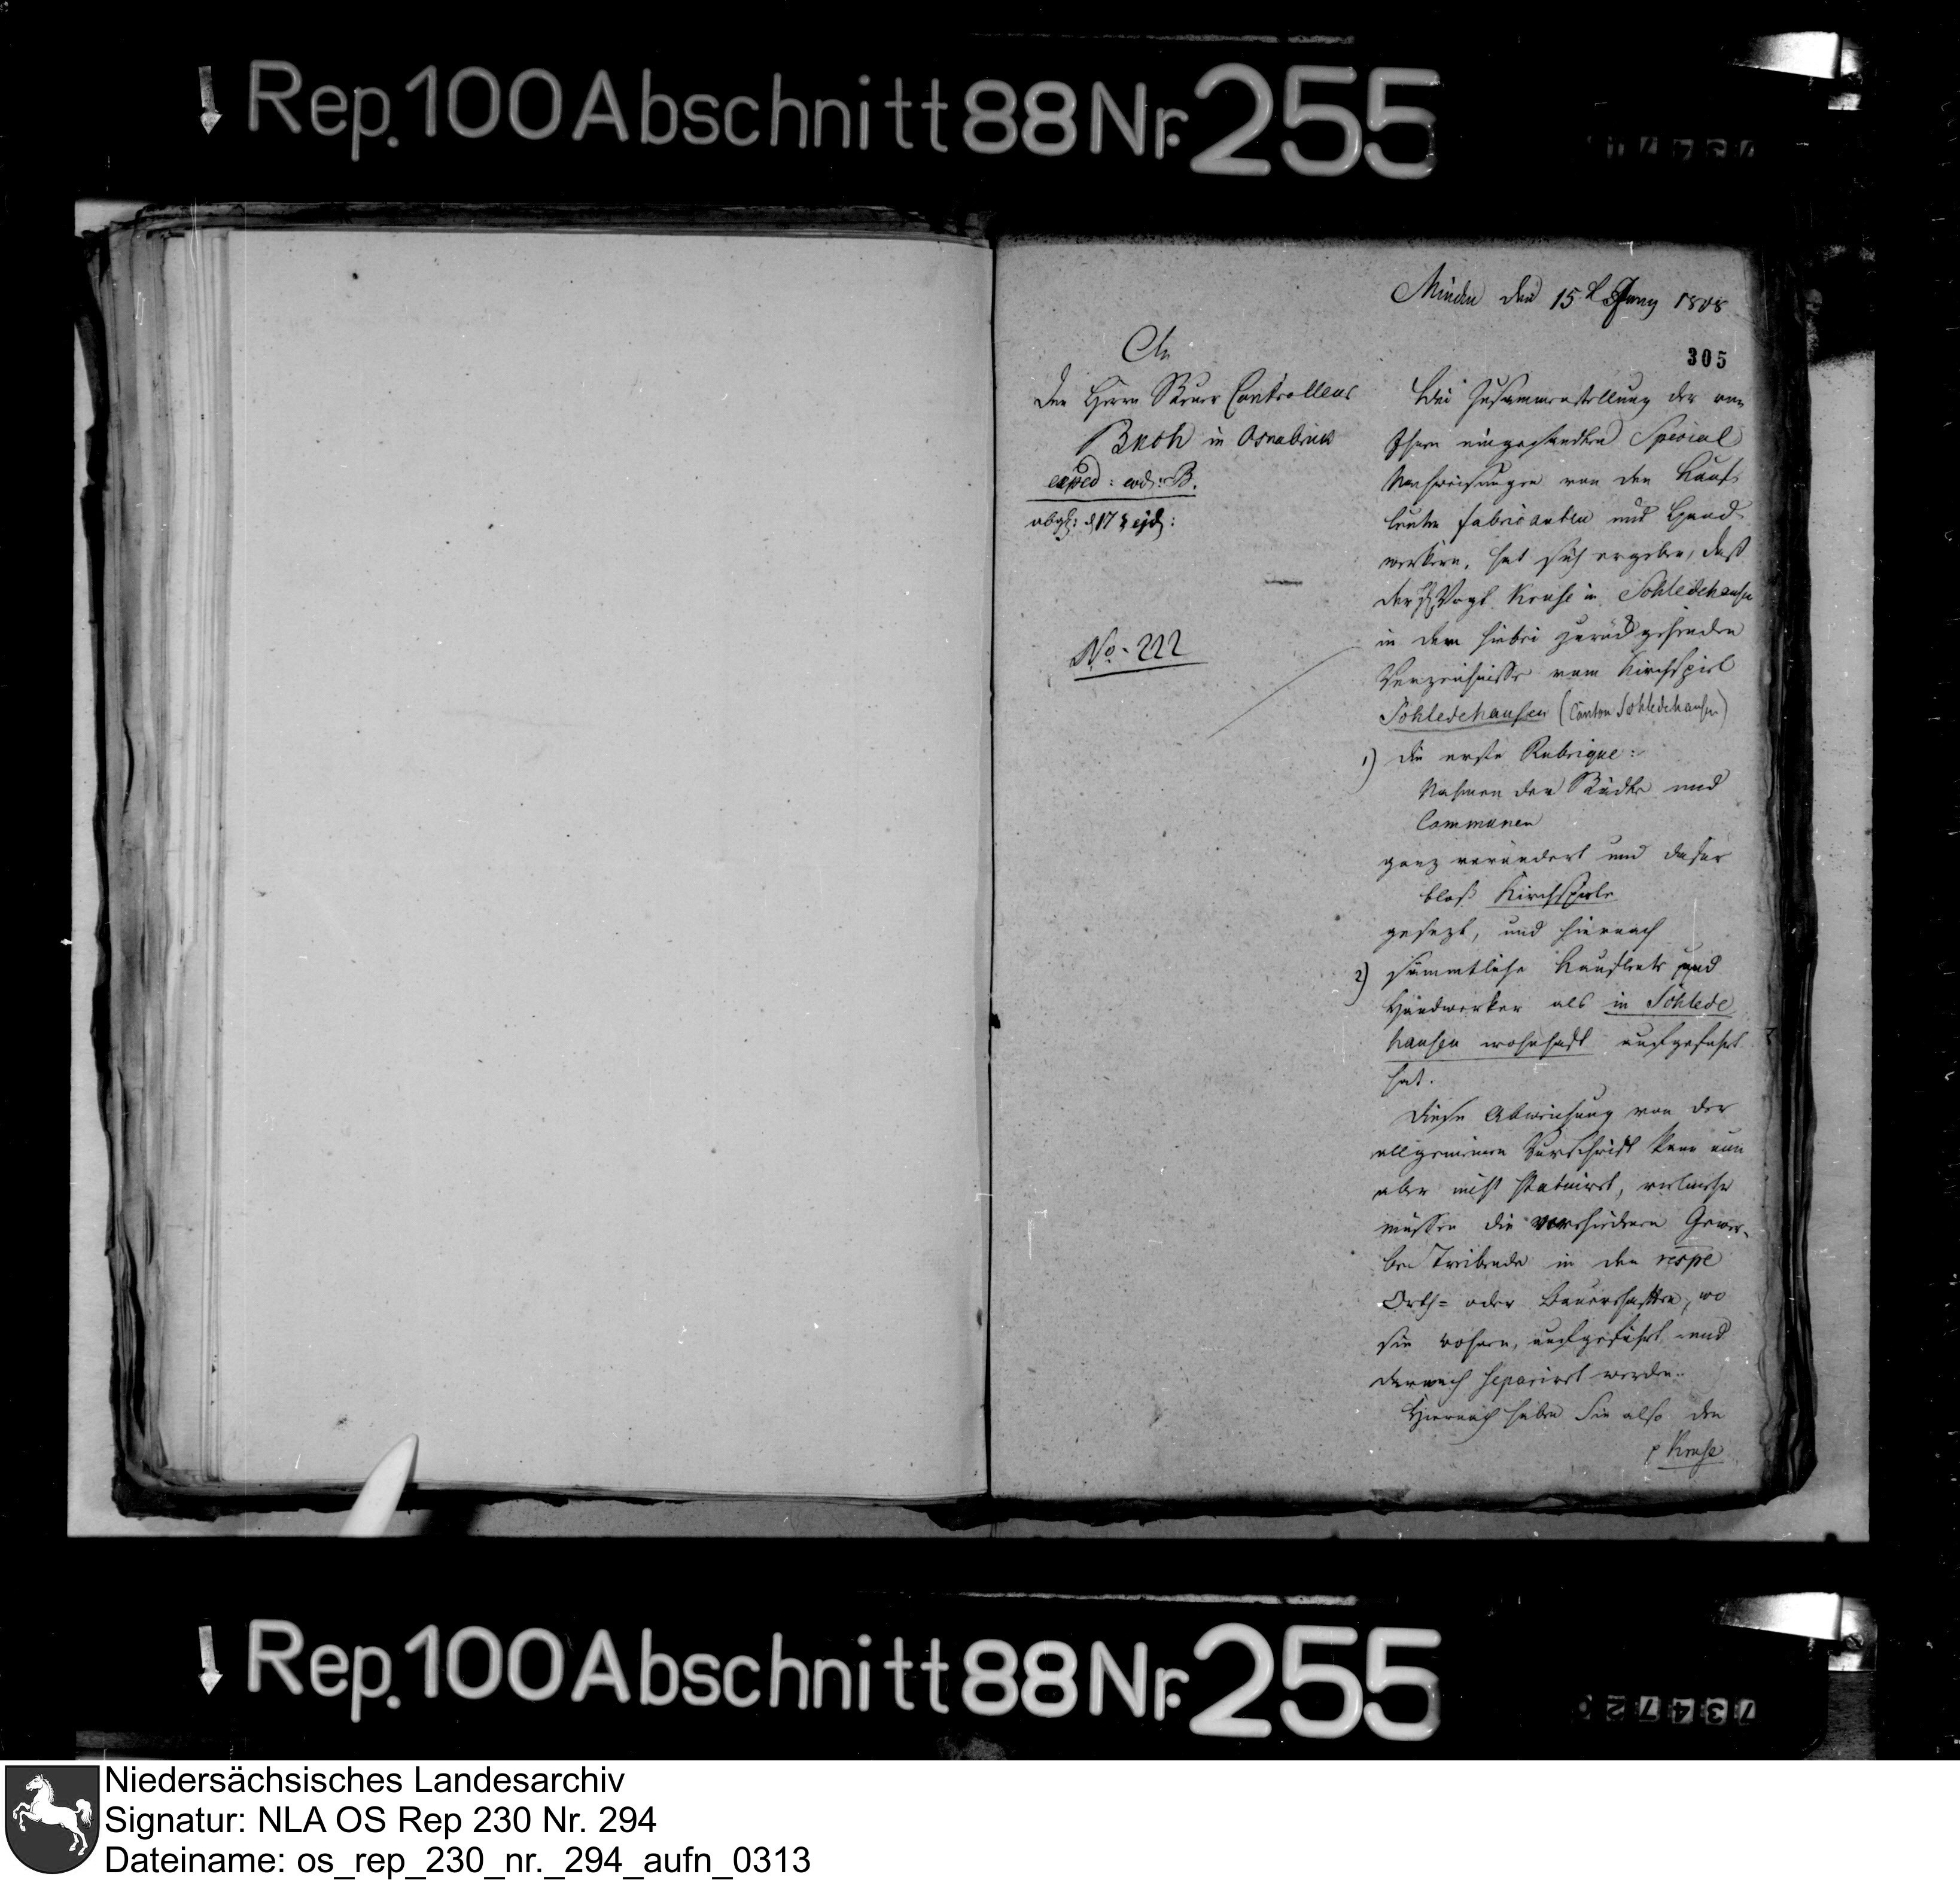 Rep. 100 Abschnitt 88 Nr. 255
Minden den 15t Juny 1808
305
An
den Herrn Steuer Controlleur
in Osnabrück
exped: eod: B.
abgs: d 17 ejd:
No. 222
Bei Zusammenstellung der von
Ihnen eingesandten Special
Nachweisungen von den Kauf
leuten fabricanten und Hand
werkern, hat sich ergeben, daß
der Vogt Kruse in Schledehausen
in dem hiebei zurückgehenden
Verzeichnisse vom Kirchspiel
Schledehausen (Canton Schledehausen)
1) die erste Rubrique:
Nahmen der Städte und
Communen
ganz verändert und dafür
bloß Kirchspiele
gesezt, und hiernach
2) sämmtliche Kaufleute und
Handwerker als in Schlede
hausen wohnhaft aufgeführt
hat.
Diese Abweichung von der
allgemeinen Vorschrift kann nun
aber nicht statuirt, vielmehr
müssen die verschiedenen Gewer-
be Treibende in den respe
Orts= oder Bauerschaften, wo
sie wohnen, aufgeführt und
darnach separirt werden.
Hiernach haben Sie also den
p Kruse
Rep. 100 Abschnitt 88 Nr. 255
Niedersächsisches Landesarchiv
Signatur: NLA OS Rep 230 Nr. 294
Dateiname: os_rep_230_nr._294_aufn_0313